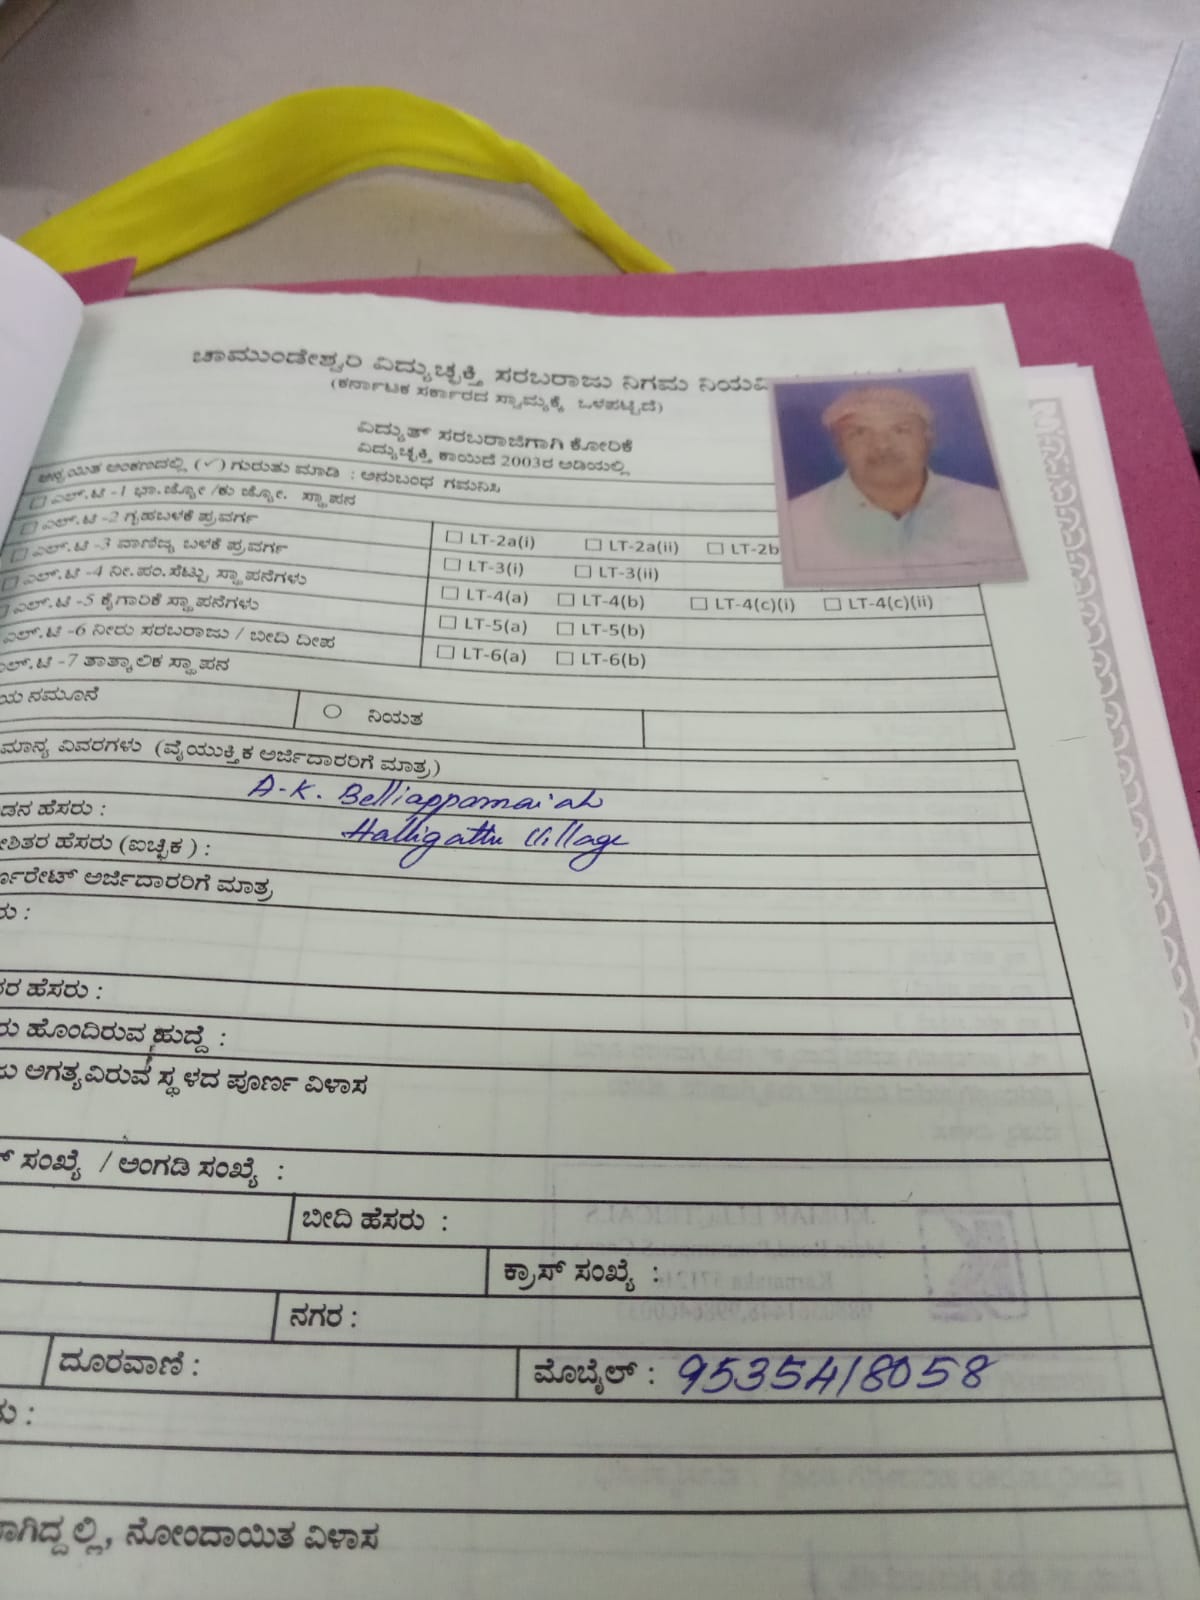 ಚಾಮುಂಡೇಶ್ವರಿ ವಿದ್ಯುಚ್ಛಕ್ತಿ ಸರಬರಾಜು ನಿಗಮ
(ಕರ್ನಾಟಕ ಸರ್ಕಾರದ ಸ್ವಾಮ್ಯಕ್ಕೆ ಒಳಪಟ್ಟಿದೆ)
ವಿದ್ಯುತ್ ಸರಬರಾಜಿಗಾಗಿ ಕೋರಿಕೆ
ವಿದ್ಯುಚ್ಛಕ್ತಿ ಕಾಯಿದೆ 2003ರ ಅಡಿಯಲ್ಲಿ
ಅನ್ವಯಿತ ಅಂಕಣದಲ್ಲಿ (✓) ಗುರುತು ಮಾಡಿ : ಅನುಬಂಧ ಗಮನಿಸಿ
☐ ಎಲ್.ಟಿ -1 ಭಾ.ಜ್ಯೋ /ಕು ಜ್ಯೋ. ಸ್ಥಾಪನ
☐ ಎಲ್.ಟಿ -2 ಗೃಹಬಳಕೆ ಪ್ರವರ್ಗ ☐ LT-2a(i) ☐ LT-2a(ii) ☐ LT-2b
☐ ಎಲ್.ಟಿ -3 ವಾಣಿಜ್ಯ ಬಳಕೆ ಪ್ರವರ್ಗ ☐ LT-3(i) ☐ LT-3(ii)
☐ ಎಲ್.ಟಿ -4 ನೀ.ಪಂ.ಸೆಟ್ಟು ಸ್ಥಾಪನೆಗಳು ☐ LT-4(a) ☐ LT-4(b) ☐ LT-4(c)(i) ☐ LT-4(c)(ii)
ಎಲ್.ಟಿ -5 ಕೈಗಾರಿಕೆ ಸ್ಥಾಪನೆಗಳು ☐ LT-5(a) ☐ LT-5(b)
ಎಲ್.ಟಿ -6 ನೀರು ಸರಬರಾಜು / ಬೀದಿ ದೀಪ ☐ LT-6(a) ☐ LT-6(b)
ಎಲ್.ಟಿ -7 ತಾತ್ಕಾಲಿಕ ಸ್ಥಾಪನ
ಯ ನಮೂನೆ ○ ನಿಯತ
ಮಾನ್ಯ ವಿವರಗಳು (ವೈಯುಕ್ತಿಕ ಅರ್ಜಿದಾರರಿಗೆ ಮಾತ್ರ)
A-K. Belliappamaiah
ಡನ ಹೆಸರು : Halligattu Village
ಶಿತರ ಹೆಸರು (ಐಚ್ಛಿಕ ) :
ರ್ಪೊರೇಟ್ ಅರ್ಜಿದಾರರಿಗೆ ಮಾತ್ರ
ರು :
ರ ಹೆಸರು :
ರು ಹೊಂದಿರುವ ಹುದ್ದೆ :
ಜು ಅಗತ್ಯವಿರುವ ಸ್ಥಳದ ಪೂರ್ಣ ವಿಳಾಸ
ಸಂಖ್ಯೆ / ಅಂಗಡಿ ಸಂಖ್ಯೆ :
ಬೀದಿ ಹೆಸರು :
ಕ್ರಾಸ್ ಸಂಖ್ಯೆ :
ನಗರ :
ದೂರವಾಣಿ : ಮೊಬೈಲ್ : 9535418058
ರು :
ಾಗಿದ್ದಲ್ಲಿ, ನೋಂದಾಯಿತ ವಿಳಾಸ